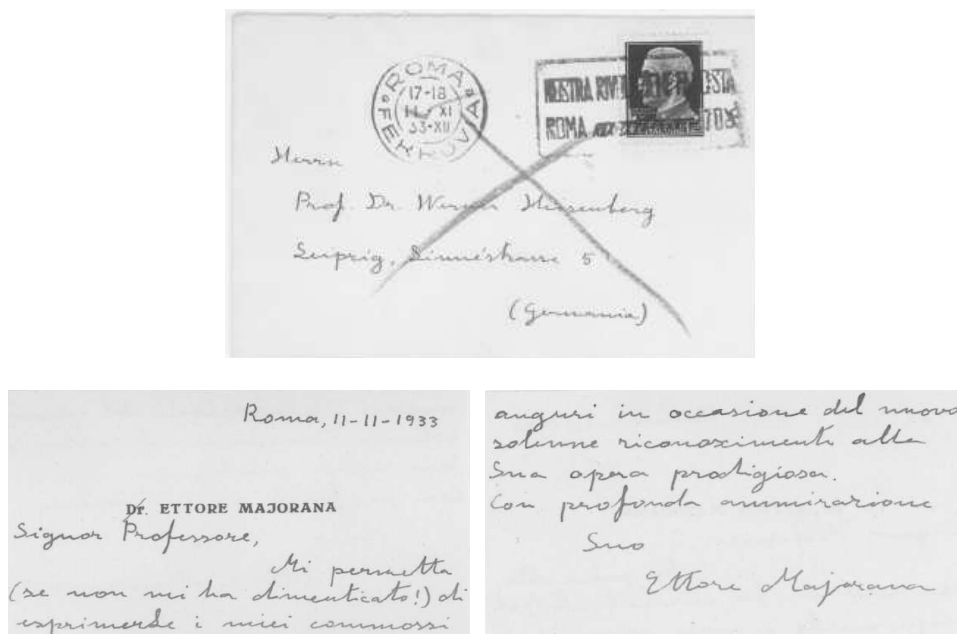 ROMA
FERROVIA
17-18
11 • XI
33-XII
ROMA
Herrn
Prof. Dr. Werner Heisenberg
Leipzig, Linnéstrasse 5
(Germania)
Roma, 11-11-1933
Dr. ETTORE MAJORANA
Signor Professore,
Mi permetta
(se non mi ha dimenticato!) di
esprimerLe i miei commossi
auguri in occasione del nuovo
solenne riconoscimento alla
Sua opera prodigiosa.
Con profonda ammirazione
Suo
Ettore Majorana